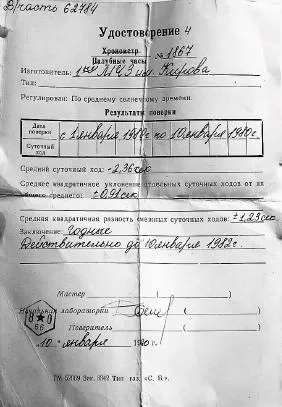 В/часть 62784
Удостоверение 4
Хронометр
Палубные часы № 1867
Изготовитель: 1ый МЧЗ им. Кирова
Тип:
Регулирован: По среднему солнечному времени.
Результаты поверки
Дата поверки с 1 января 1980 г по 10 января 1980 г.
Суточный ход
Средний суточный ход: -2,36 сек
Среднее квадратичное уклонение отдельных суточных ходов от их
общего среднего: ± 0,91 сек
Средняя квадратичная разность смежных суточных ходов: ± 1,23 сек
Заключение: Годные
Действительно до 10 января 1982 г.
Мастер ( )
Начальник лаборатории ( )
Поверитель ( )
8 0
66
"10" января 1980 г.
Зак. 3942 Тип. газ. «С. В.».